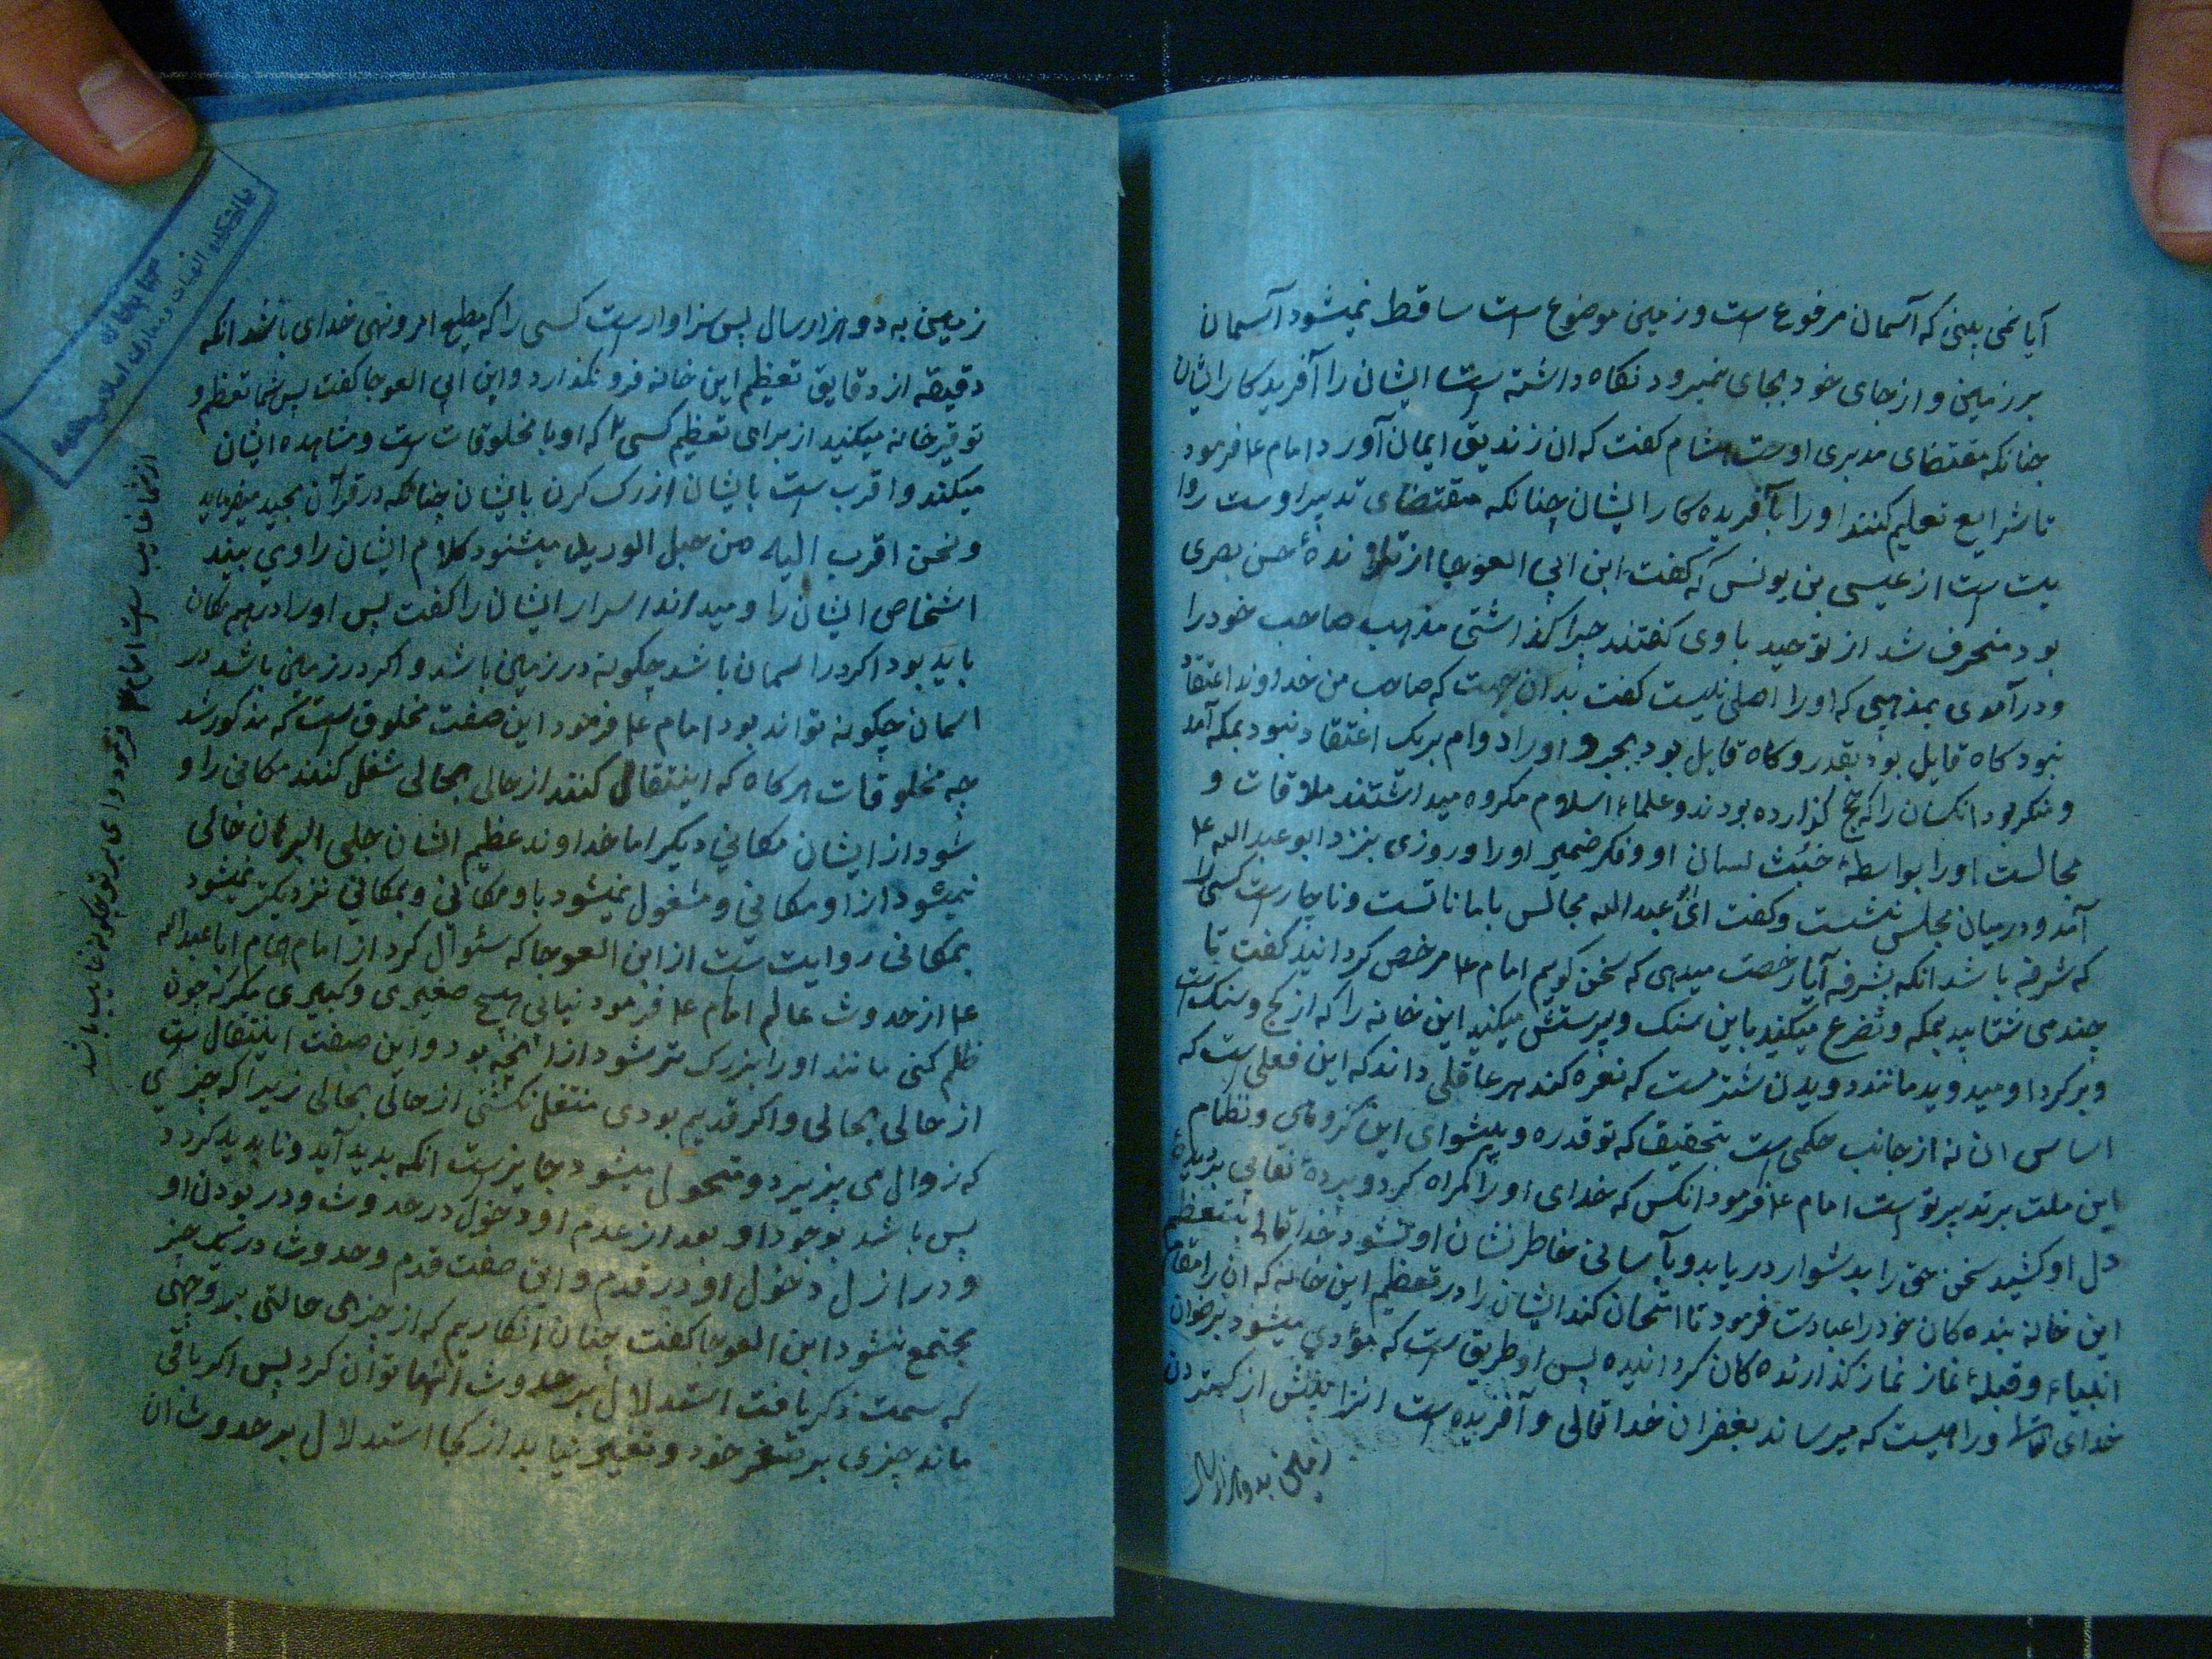 آیا نمی بینی که آسمان مرفوع است و زمین موضوع است ساقط نمیشود آسمان
بر زمین و از جای خود بجای نمیرود نکاه داشته است ایشان را آفریدکار ایشان
چنانکه مقتضای مدبری اوست هشام کفت که ان زندیق ایمان آورد امام ع فرمود
تا شرایع تعلیم کنند او را با آفریده کار ایشان چنانکه مقتضای تدبیر اوست روا
یت است از عیسی بن یونس که کفت ابن ابی العوجا از تلاونده حسن بصری
بود منحرف شد از توحید باوی کفتند چرا کذاشتی مذهب صاحب خود را
و در آمدی بمذهبی که او را اصلی نیست کفت بدان جهت که صاحب من خداوند اعتقاد
نبود کاه قایل بود بقدر و کاه قایل بود بجبر و او را دوام بریک اعتقاد نبود بمکه آمد
و منکر بود انکسان را که حج کزارده بودند و علماء اسلام مکروه میداشتند ملاقات و
مجالست او را بواسطهٔ خبث لسان او و فکر ضمیر او را و روزی بنزد ابو عبد الله ع
آمد و درمیان مجلس نشست و کفت ای عبد الله مجالس با ماناتست و ناچارست کسی را
که شرفه باشد انکه بشرفه آیا رخصت میدهی که سخن کویم امام ع مرخص کردانید کفت تا
چند می شتابید بمکه و تضرع میکنید باین سنک و پرستش میکنید این خانه را که از کج و سنک است
و بر کرد او میدوید مانند دویدن شتر مست که نعره کند هر عاقلی داند که این فعلی است که
اساس ان نه از جانب حکمی است بتحقیق که تو قدره و پیشوای این کروهی و نظام
این ملت بر تدبیر تو است امام ع فرمود انکس که خدای او را کمراه کرد و پردهٔ نقابی بر دیدهٔ
دل او کشید سخن حق را بدشوار دریابد و بآسانی خاطرنشان او نشود خدا تعالی بتعظیم
این خانه بنده کان خود را عبادت فرمود تا امتحان کند ایشان را در تعظیم این خانه که ان را مقام
انبیاء و قبلهٔ نماز نماز کذارنده کان کردانیده پس او طریق است که مؤدی میشود برضوان
خدای تعالی و راهیست که میرساند بغفران خدا تعالی و آفریده است انرا پیش از کستردن
زمین بدو هزار سال
زمین به دو هزار سال پس سزاوار است کسی را که مطیع امر و نهی خدای باشد انکه
دقیقه از دقایق تعظیم این خانه فرو نکذارد و ابن ابی العوجا کفت پس شما تعظیم و
توقیر خانه میکنید از برای تعظیم کسی که او با مخلوقات است و مشاهده ایشان
میکند و اقرب است بایشان از رک کردن بایشان چنانکه در قرآن مجید میفرماید
و نحن اقرب الیه من حبل الورید میشنود کلام ایشان را و می بیند
اشخاص ایشان را و میداند اسرار ایشان را کفت پس او را در همه مکان
باید بود اکر در اسمان باشد چکونه در زمین باشد و اکر در زمین باشد در
اسمان چکونه تواند بود امام ع فرمود این صفت مخلوق است که مذکور شد
چه مخلوقات هر کاه که اینتقال کنند از حالی بحالی شغل کنند مکانی را و
شود از ایشان مکانی دیکر اما خداوند عظیم الشان جلی البرهان خالی
نمیشود از او مکانی و مشغول نمیشود باو مکانی و بمکانی نزدیکتر نمیشود
بمکانی روایت است از ابن العوجا که سئوال کرد از امام همام ابا عبد الله
ع از حدوث عالم امام ع فرمود نیابی هیچ صغیری و کبیری مکر که چون
ظلم کنی مانند او را بزرک تر شود از انچه بود و این صفت اینتقال است
از حالی بحالی و اکر قدیم بودی منتقل نکشتی از حالی بحالی زیرا که چیزی
که زوال می پزیرد و متحول میشود جایز است انکه بدید آید و ناپدید کردد
پس باشد بوجود او بعد از عدم او دخول در حدوث و در بودن او
و در ازل دخول او در قدم و این صفت قدم و حدوث در یک چیز
مجتمع نشود ابن العوجا کفت چنان انکاریم که از چیزی حالتی بر وجهی
که سمت ذکر یافت استدلال بر حدوث انها توان کرد پس اکر باقی
ماند چیزی بر صغر خود و تغیر نیابد از کجا استدلال بر حدوث ان
از تو غایب است امام ع فرمود وای بر تو چکونه غایب باشد